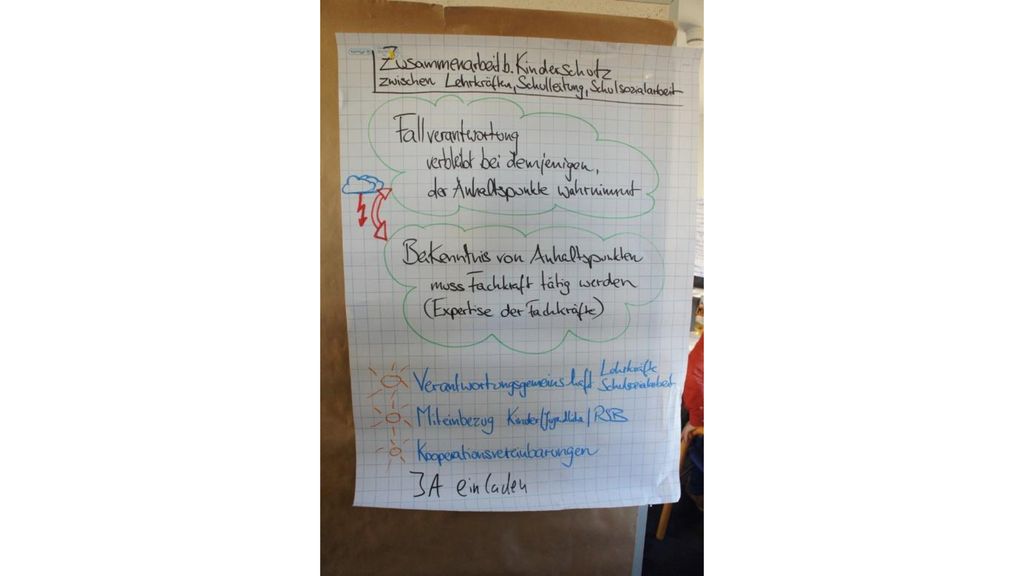 Zusammenarbeit b. Kinderschutz
zwischen Lehrkräften, Schulleitung, Schulsozialarbeit
Fallverantwortung
verbleibt bei demjenigen,
der Anhaltspunkte wahrnimmt
Bei Kenntnis von Anhaltspunkten
muss Fachkraft tätig werden
(Expertise der Fachkräfte)
Verantwortungsgemeinschaft Lehrkräfte
Schulsozialarbeit
Miteinbezug Kinder/Jugendliche/
Kooperationsvereinbarungen
JA einladen